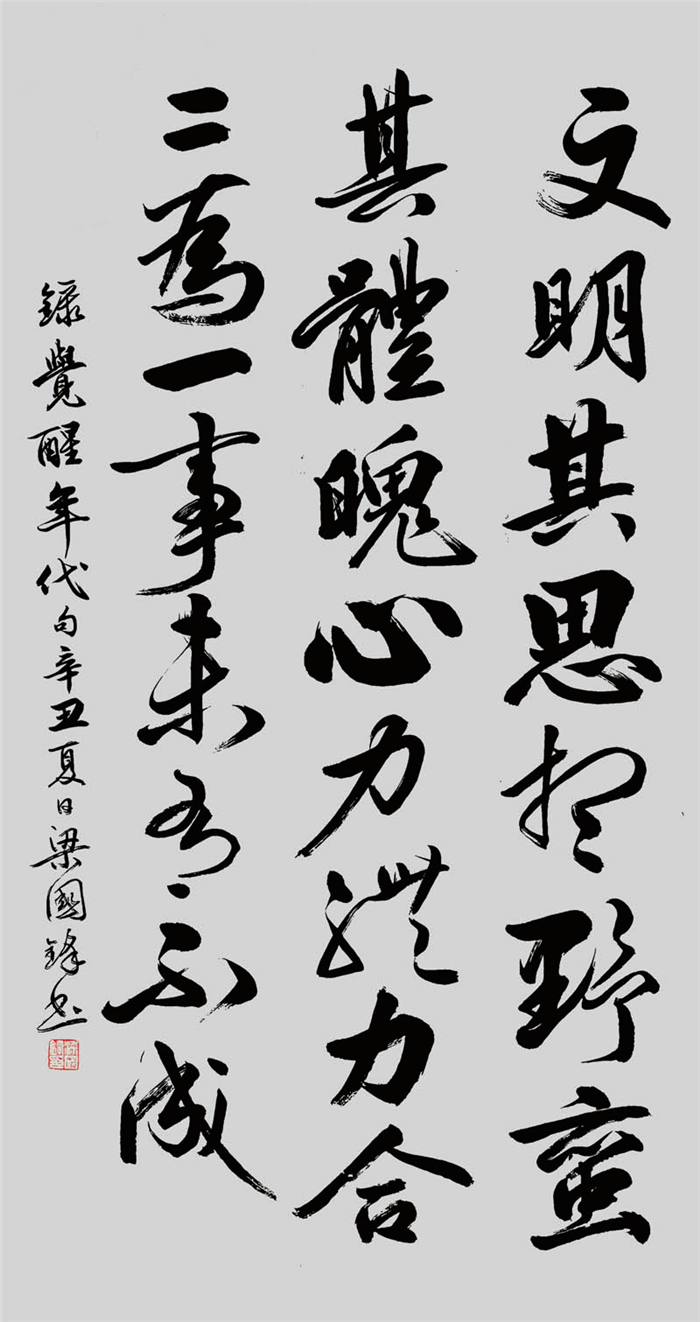 文明其思想野蛮
其體魄心力體力合
二為一事未有不成
錄覺醒年代句辛丑夏日梁國鋒书